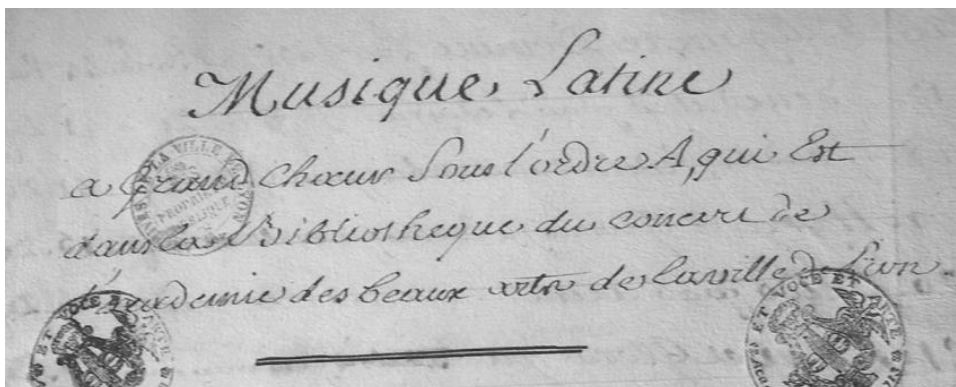 Musique Latine
a grand Chœur Sous l'ordre A, qui Est
dans la Bibliotheque du concert de
l'academie des beaux arts de la ville de Lion
ET VOCE ET
ET VOCE ET ARTE